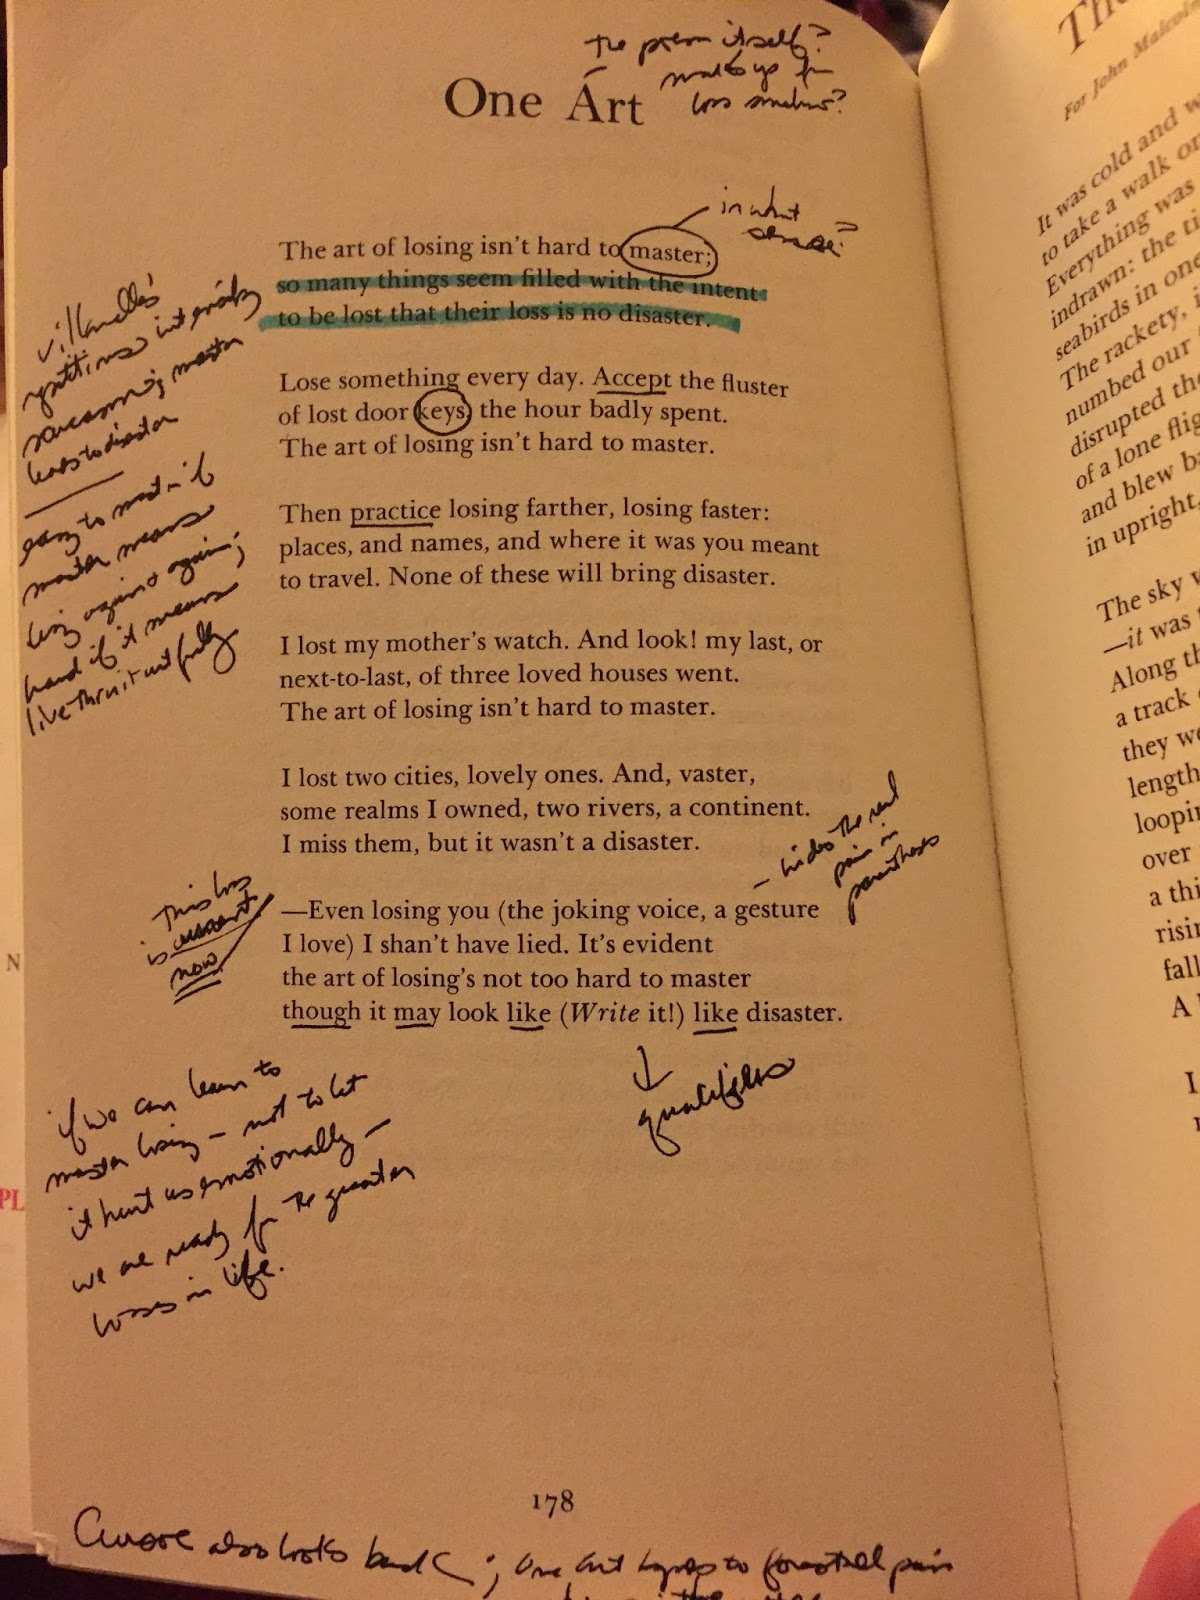 the poem itself?
makes up for
loss somehow?
One Art
in what
sense?
The art of losing isn't hard to master;
so many things seem filled with the intent
to be lost that their loss is no disaster.
villanelles'
repetitions intensify
sarcasm; master
leads to disaster
Lose something every day. Accept the fluster
of lost door keys, the hour badly spent.
The art of losing isn't hard to master.
easy to master if
master means
losing again & again;
hard if it means
live thru it artfully
Then practice losing farther, losing faster:
places, and names, and where it was you meant
to travel. None of these will bring disaster.
I lost my mother's watch. And look! my last, or
next-to-last, of three loved houses went.
The art of losing isn't hard to master.
I lost two cities, lovely ones. And, vaster,
some realms I owned, two rivers, a continent.
I miss them, but it wasn't a disaster.
– hides the real
pain in
parentheses
This loss
is current
now
—Even losing you (the joking voice, a gesture
I love) I shan't have lied. It's evident
the art of losing's not too hard to master
though it may look like (Write it!) like disaster.
qualifiers
if we can learn to
master losing – not to let
it hurt us emotionally –
we are ready for the greater
losses in life.
178
also looks back; One Art hopes to forestall pain
N
PL
For John Malcolm
It was cold and
to take a walk
Everything was
indrawn: the
seabirds in
The rackety,
numbed our
disrupted
of a lone
and blew
in upright,
The sky
—it was
Along
a track
they
length
over
a
fall
A
I